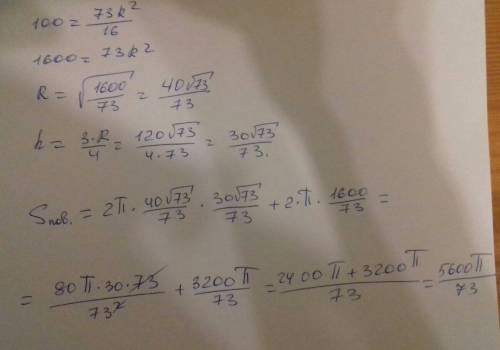 100 = 73R²/16
1600 = 73R²
R = √(1600/73) = 40√73/73
h = 3·R/4 = 120√73/4·73 = 30√73/73.
Sпов. = 2π · 40√73/73 · 30√73/73 + 2·π · 1600/73 =
= 80π·30·73/73² + 3200π/73 = 2400π + 3200π/73 = 5600π/73